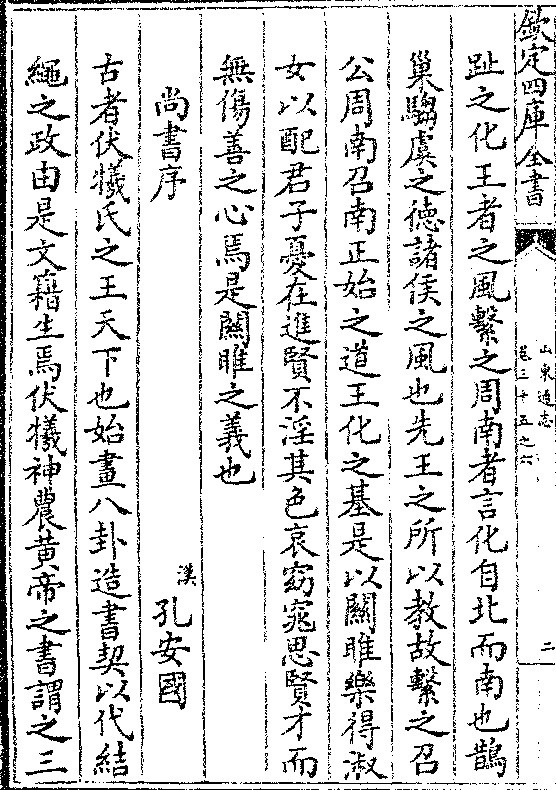 欽定四庫全書
山東通志
卷三十五之六
二
趾之化王者之風繫之周南者言化自北而南也鵲
巢騶虞之德諸侯之風也先王之所以教故繫之召
公周南召南正始之道王化之基是以關雎樂得淑
女以配君子憂在進賢不淫其色哀窈窕思賢才而
無傷善之心焉是關雎之義也
尚書序
漢孔安國
古者伏犧氏之王天下也始畫八卦造書契以代結
繩之政由是文籍生焉伏犧神農黄帝之書謂之三